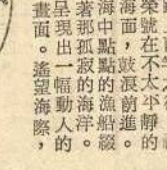 榮號在不太平靜的
海面，鼓浪前進。
海中點點的漁船綴
著那孤寂的海洋。
呈現出一幅動人的
畫面。遙望海際，